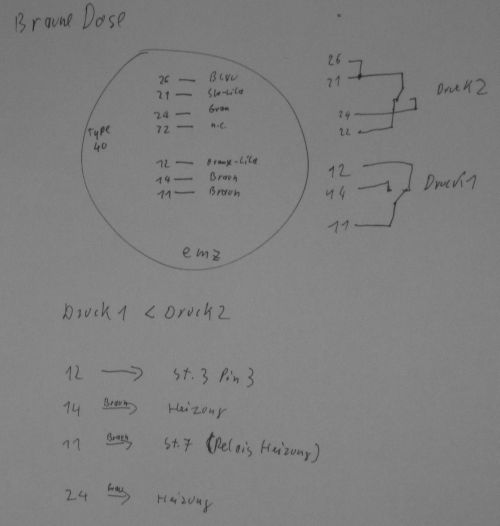 Braune Dose
26 — Blau
21 — Slw-Lila
24 — Grau
22 — n.c.
Type
40
12 — Oranye-Lila
14 — Braun
11 — Braun
emz
26
21
24
22
Druck 2
12
14
11
Druck 1
Druck 1 < Druck 2
12 → St. 3 Pin 3
14 Braun → Heizung
11 Braun → St. 7 (Relais Heizung)
24 Grau → Heizung